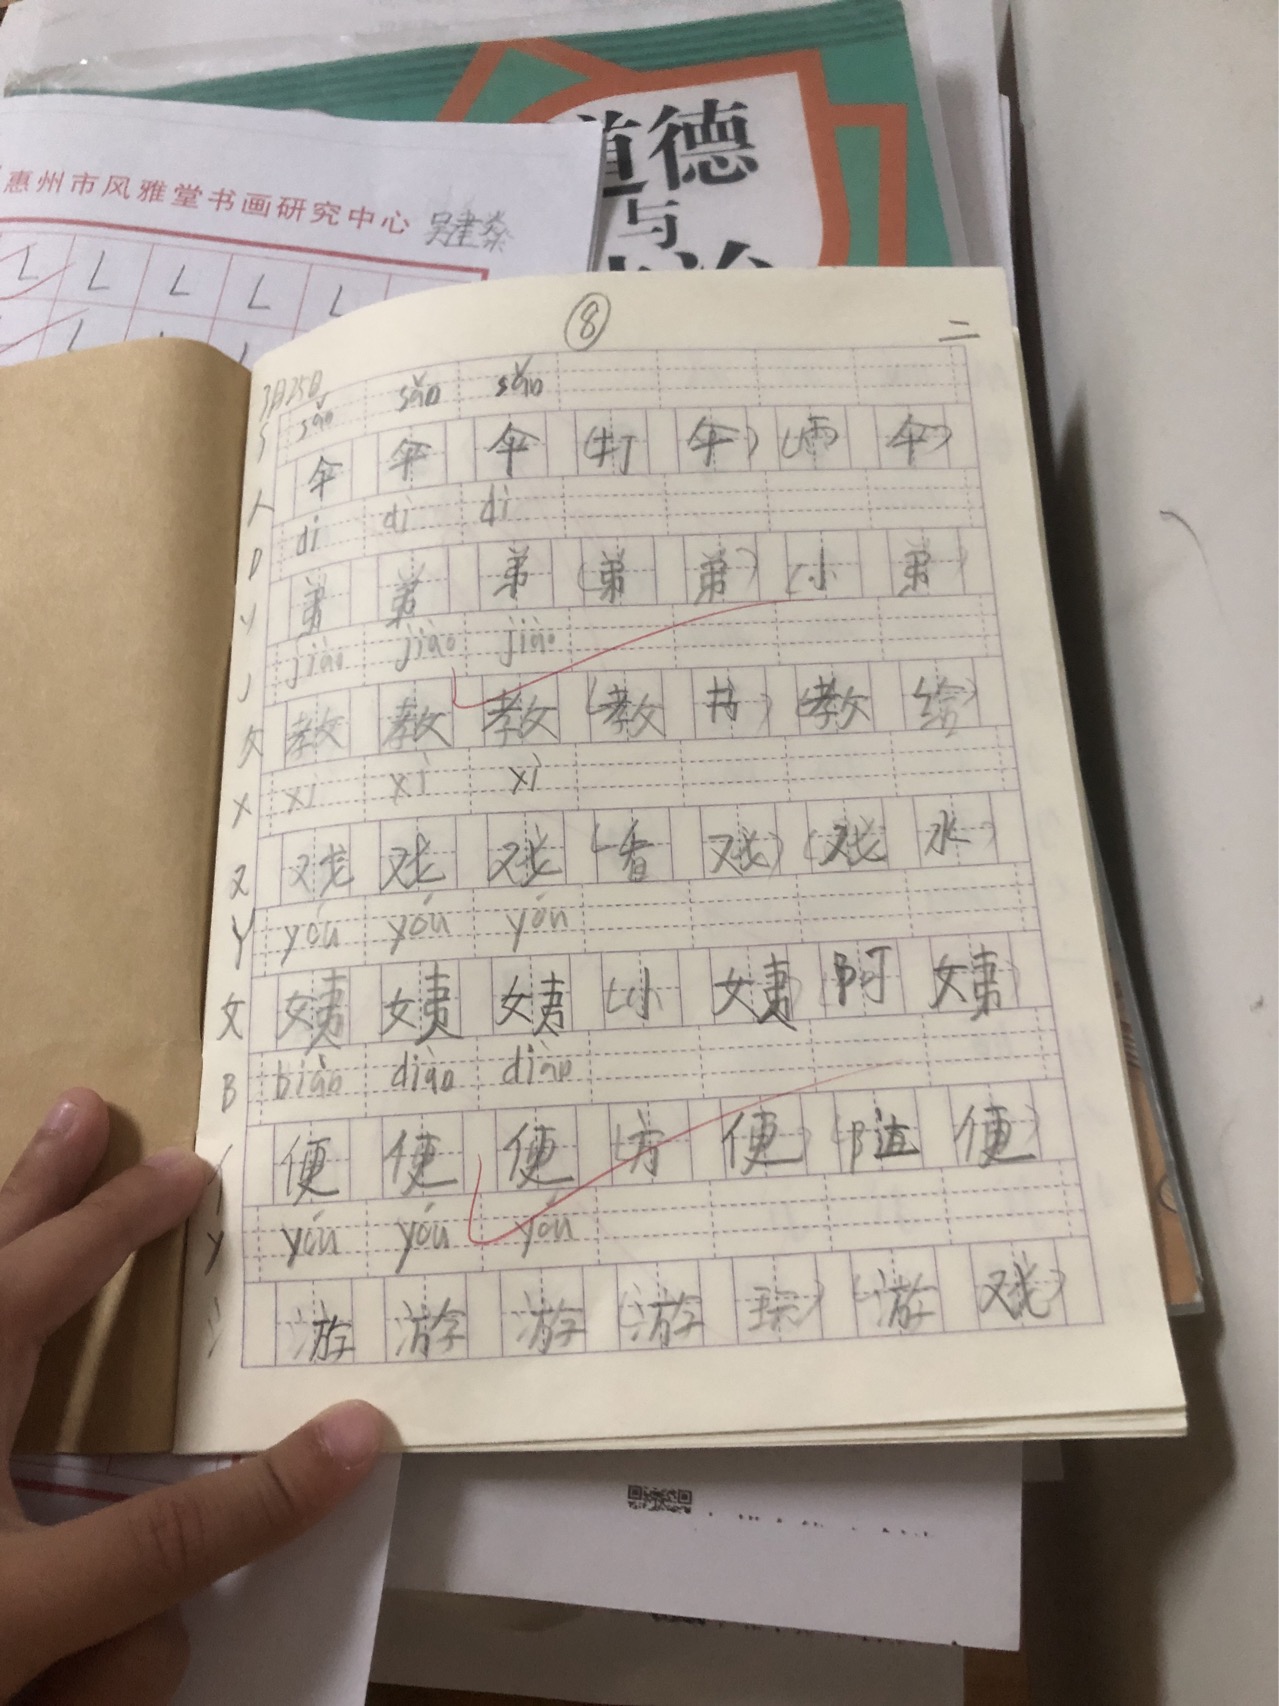 道德
与
惠州市风雅堂书画研究中心
L L L L L
⑧
二
3月25日
S sǎn sǎn sǎn
人 伞 伞 伞 (打 伞) (雨 伞)
D dì dì dì
丷 弟 弟 弟 (弟 弟) (小 弟)
J jiào jiào jiào
攵 教 教 教 (教 书) (教 绘)
X xì xì xì
又 戏 戏 戏 (看 戏) (戏 水)
Y yóu yóu yóu
女 姨 姨 姨 (小 姨) (阿 姨)
B biào diào diào
亻 便 便 便 (方 便) (随 便)
Y yóu yóu yóu
氵 游 游 游 (游 玩) (游 戏)